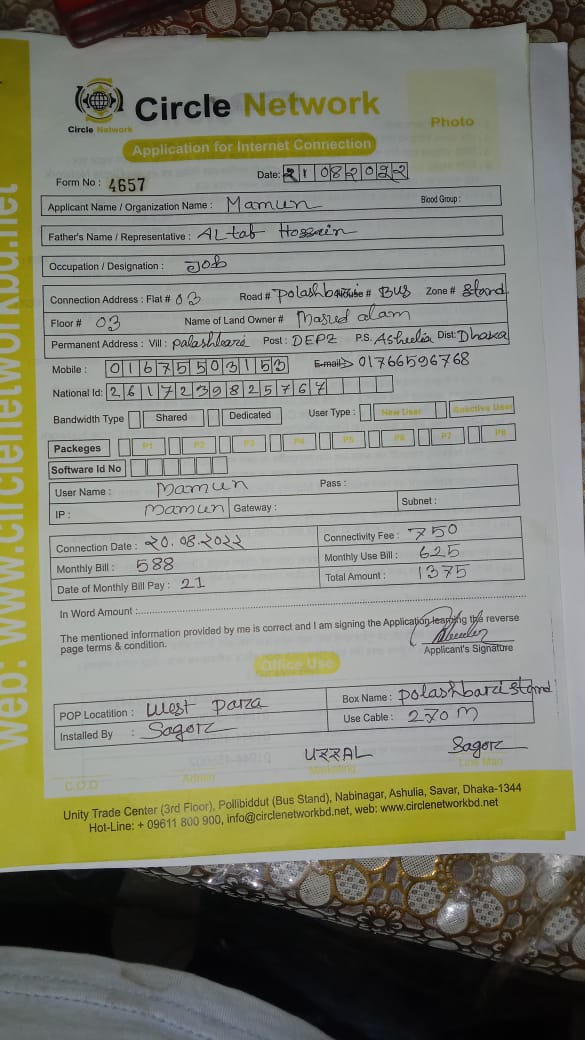 Circle Network
Circle Network
Photo
Application for Internet Connection
Form No : 4657 Date: 21082022
Applicant Name / Organization Name : Mamun Blood Group :
Father's Name / Representative : ALtab Hossain
Occupation / Designation : Job
Connection Address : Flat # 03 Road # Polashbari House # Bus Zone # Stand
Floor # 03 Name of Land Owner # Masud alam
Permanent Address : Vill : palashbari Post : DEPZ P.S. Ashulia Dist: Dhaka
Mobile : 01675503153 E-mail 01766596768
National Id: 2617239825767
Bandwidth Type Shared Dedicated User Type : New User Reactive User
Packeges P1 P2 P3 P4 P5 P6 P7 P8
Software Id No
User Name : Mamun Pass :
IP : Mamun Gateway : Subnet :
Connection Date : ২০.০৪.২০২২ Connectivity Fee : 750
Monthly Bill : 588 Monthly Use Bill : 625
Date of Monthly Bill Pay : 21 Total Amount : 1375
In Word Amount :
The mentioned information provided by me is correct and I am signing the Application learning the reverse
page terms & condition.
Applicant's Signature
Office Use
POP Locatition : West Para Box Name : polashbari stand
Installed By : Sagor Use Cable : 270 M
Sagor
C.O.D Admin Marketing Line Man
Unity Trade Center (3rd Floor), Pollibiddut (Bus Stand), Nabinagar, Ashulia, Savar, Dhaka-1344
Hot-Line: + 09611 800 900, info@circlenetworkbd.net, web: www.circlenetworkbd.net
web: www.circlenetworkbd.net